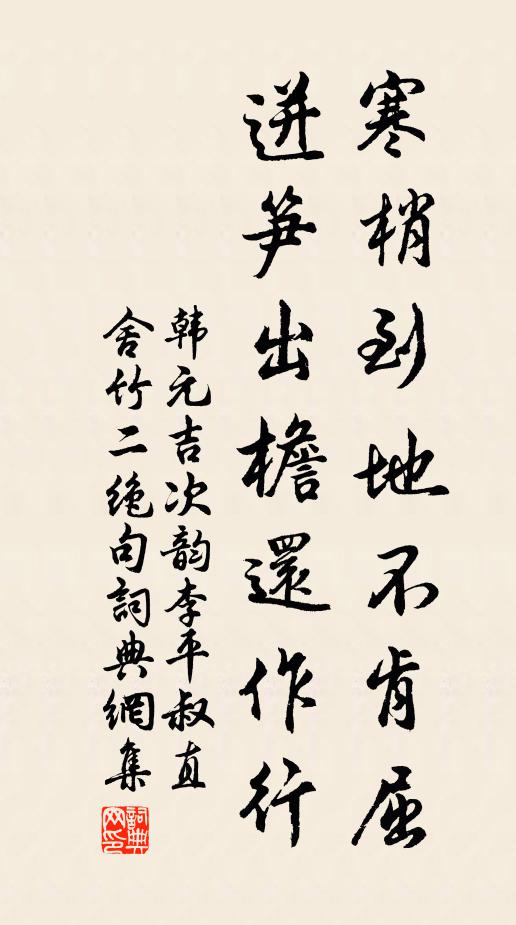 寒梢到地不肯屈
迸笋出檐還作行
韩元吉次韵李平叔直
舍竹二绝句詞典網集
詞典网印